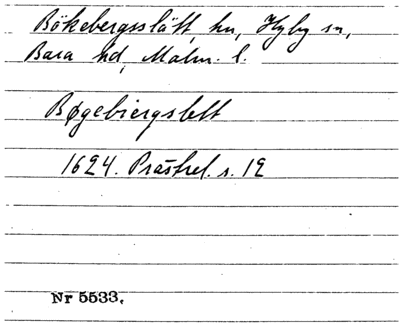 Bökebergsslätt, hn, Hyby sn,
Bara hd, Malm. l.
Bøgebiergslett
1624. Prästrel. s. 12
Nr 5533.